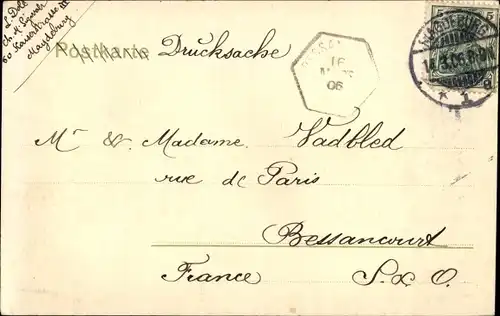 L. Doll
60 Kaiserstrasse III
Magdeburg
Postkarte Drucksache
BESSAN
16
06
MAGDEBURG
14.3.06.
* 1
Mr & Madame Vadbled
rue de Paris
Bessancourt
France S. & O.